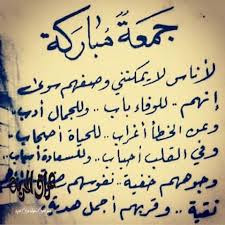 جمعة مباركة
لأناس لا يمكنني وصفهم سوى
إنهم .. للوفاء باب .. وللجمال أدب
وعن الخطأ أغراب .. للحياة أصحاب
وفي القلب أحباب .. وللسعادة أسباب
وجوههم خفية .. نفوسهم
نقية .. وقربهم أجمل هدية